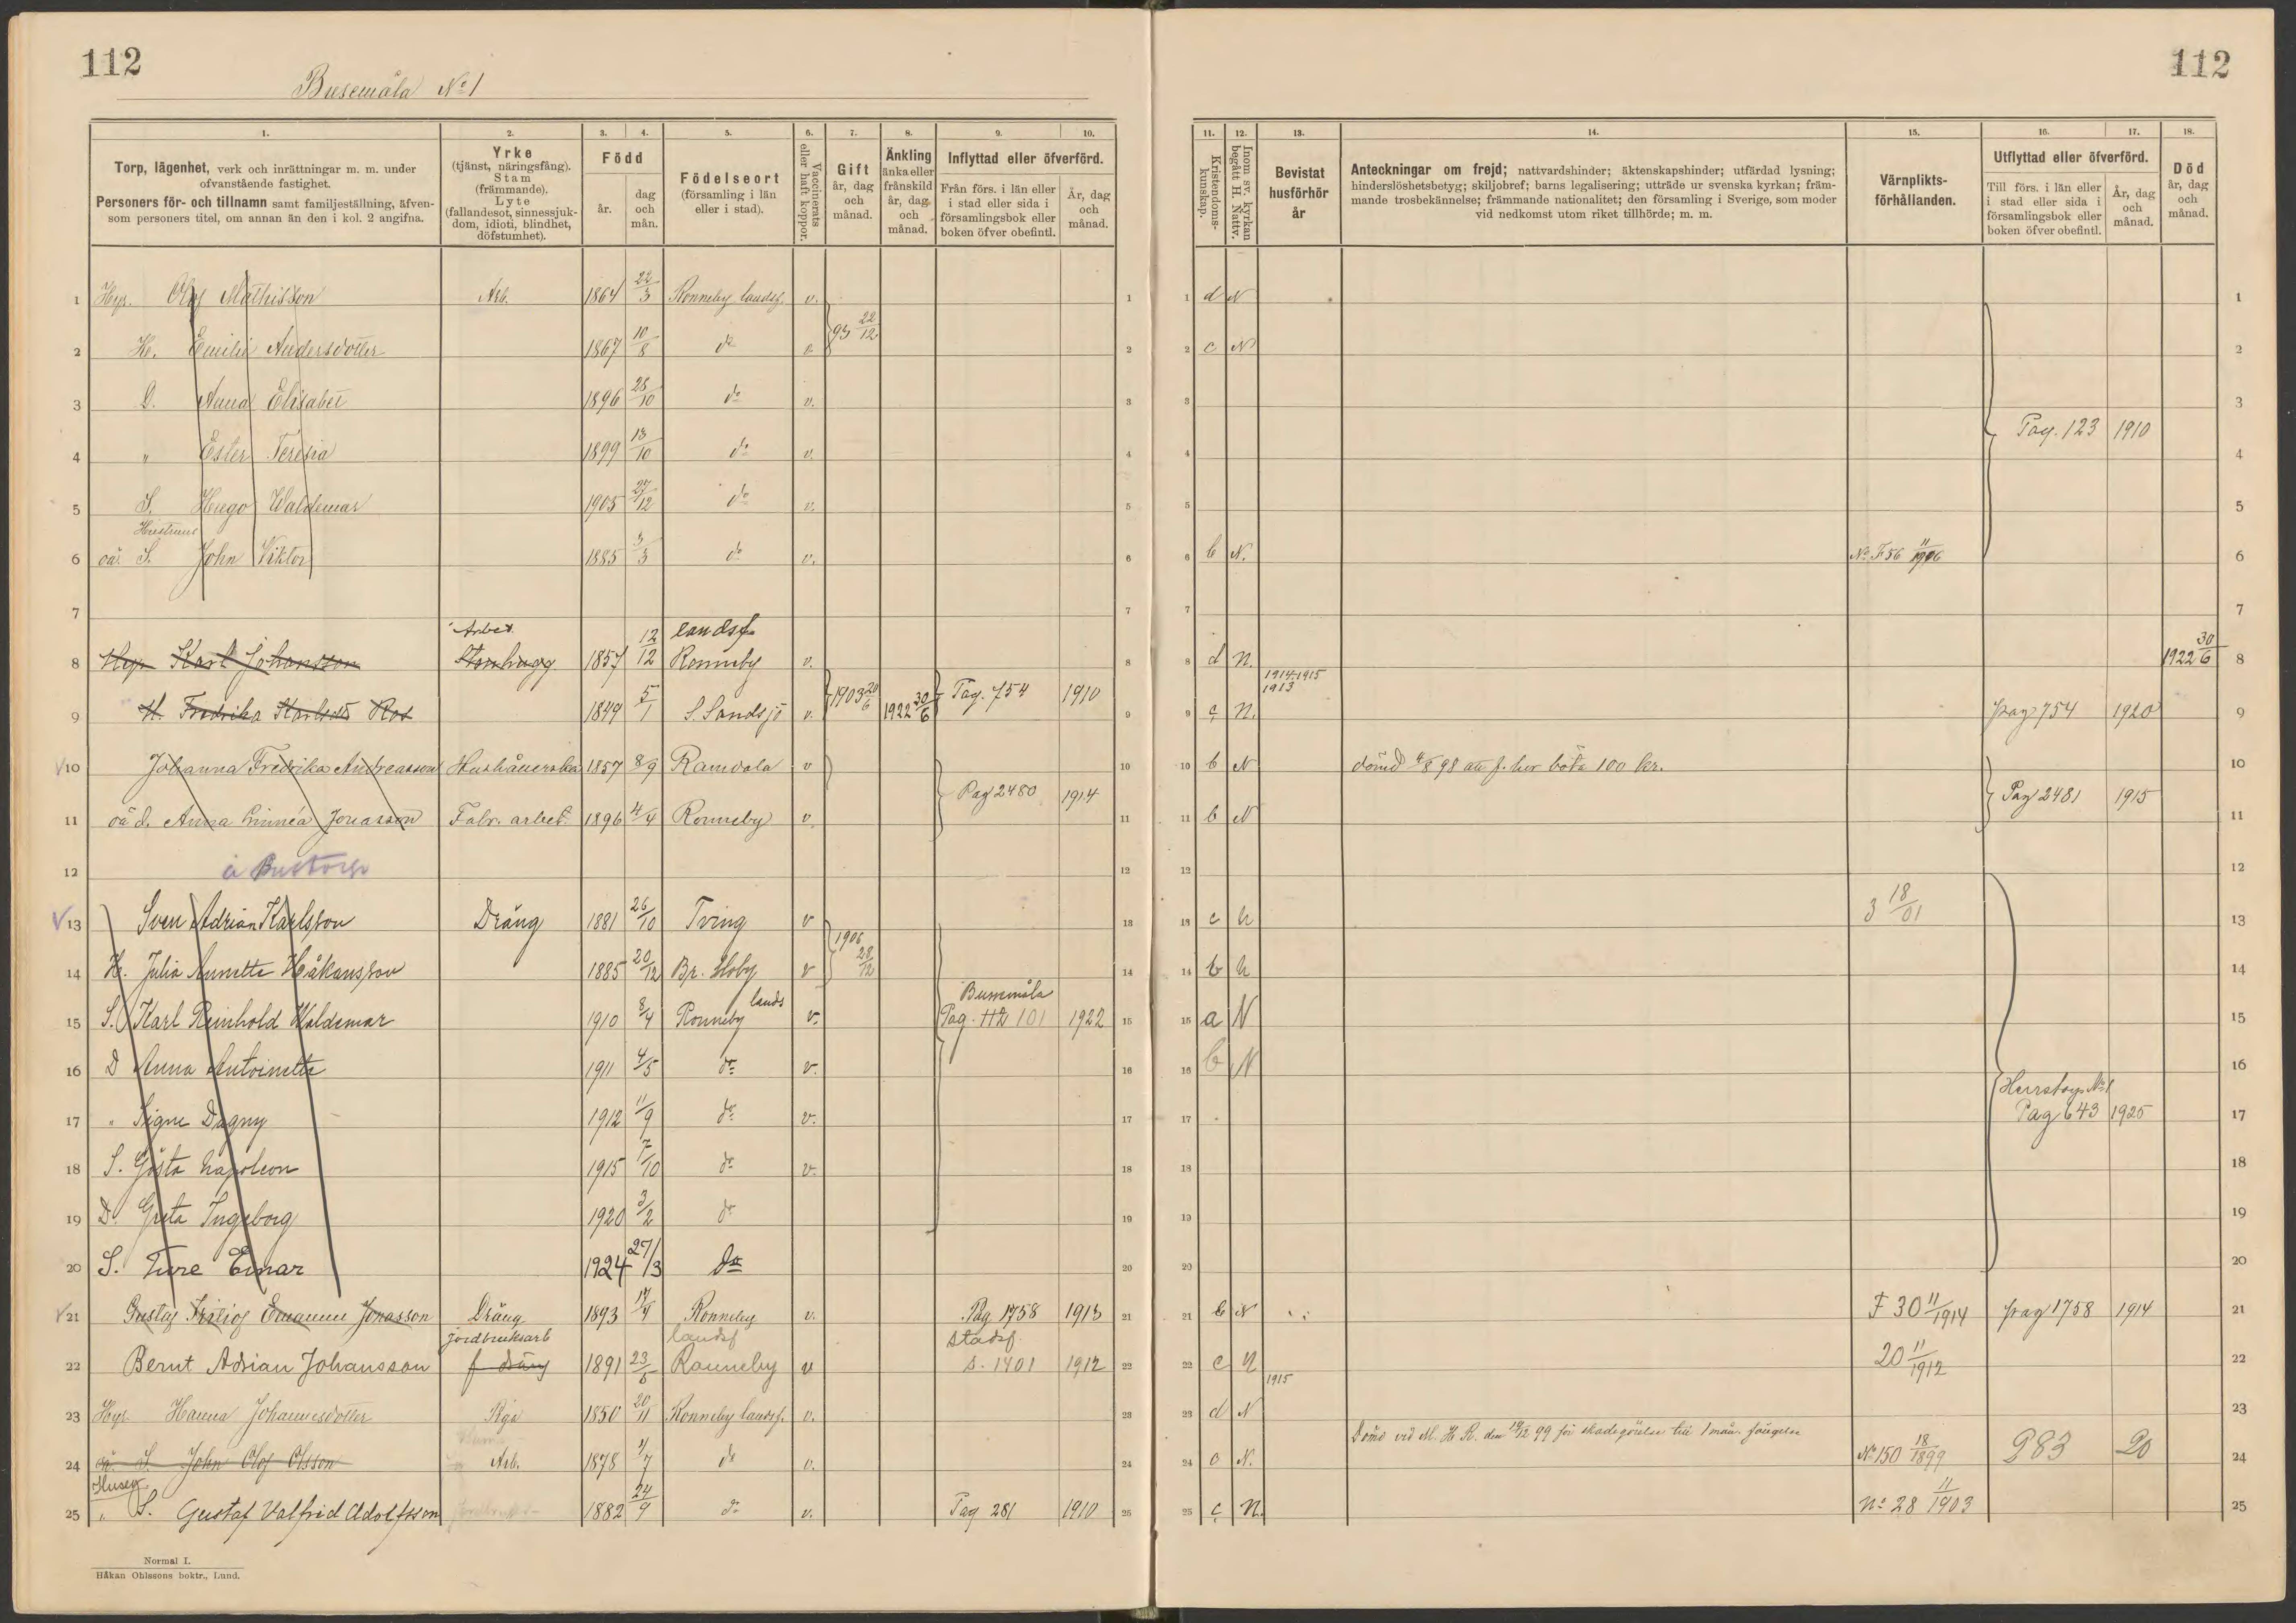 112
112
Busemåla No 1
1. 2. 3. 4. 5. 6. 7. 8. 9. 10.
Torp, lägenhet, verk och inrättningar m. m. under
ofvanstående fastighet.
Personers för- och tillnamn samt familjeställning, äfven-
som personers titel, om annan än den i kol. 2 angifna.
Yrke
(tjänst, näringsfång).
Stam
(främmande).
Lyte
(fallandesot, sinnessjuk-
dom, idioti, blindhet,
döfstumhet).
Född
år.
dag
och
mån.
Födelseort
(församling i län
eller i stad).
Vaccinerats
eller haft koppor.
Gift
år, dag
och
månad.
Änkling
änka eller
frånskild
år, dag
och
månad.
Inflyttad eller öfverförd.
Från förs. i län eller
i stad eller sida i
församlingsbok eller
boken öfver obefintl.
År, dag
och
månad.
11. 12. 13. 14. 15. 16. 17. 18.
Kristendoms-
kunskap.
Inom sv. kyrkan
begått H. Nattv.
Bevistat
husförhör
år
Anteckningar om frejd; nattvardshinder; äktenskapshinder; utfärdad lysning;
hinderslöshetsbetyg; skiljobref; barns legalisering; utträde ur svenska kyrkan; främ-
mande trosbekännelse; främmande nationalitet; den församling i Sverige, som moder
vid nedkomst utom riket tillhörde; m. m.
Värnplikts-
förhållanden.
Utflyttad eller öfverförd.
Till förs. i län eller
i stad eller sida i
församlingsbok eller
boken öfver obefintl.
År, dag
och
månad.
Död
år, dag
och
månad.
1 Hyr. Olof Mathisson Arb. 1864 22/3 Ronneby landsf. v. 1 1 d N 1
93 22/12
2 H. Emilia Andersdotter 1867 10/8 do v 2 2 c N 2
3 D. Anna Elisabet 1896 28/10 do v. 3 3 3
Pag. 123 1910
4 " Ester Teresia 1899 13/10 do v. 4 4 4
5 S. Hugo Waldemar 1905 27/12 do v. 5 5 5
Hustruns
6 oä. S. John Viktor 1885 3/3 do v. 6 6 b N. No F 56 11/1906 6
7 7 7 7
Arbet. landsf.
8 Hyr Karl Johansson Stenhugg 1857 12/12 Ronneby v. 8 8 d N. 1922 30/6 8
1914-1915
1913
9 H. Fredrika Karlsdr Ros 1849 5/1 S. Sandsjö v. 1903 20/6 1922 30/6 Pag. 754 1910 9 9 c N. pag 754 1920 9
10 Johanna Fredrika Andreasson Hushållerska 1857 8/9 Ramdala v 10 10 b N dömd 4/8 98 att f. her böta 100 kr. 10
Pag 2480 1914 Pag 2481 1915
11 oä d. Anna Linnéa Jonasson Fabr. arbet. 1896 4/4 Ronneby v. 11 11 b N 11
12 å Bustorp 12 12 12
13 Sven Adrian Karlsson Dräng 1881 26/10 Tving v 13 13 c N 3 18/01 13
1906 28/12
14 H. Julia Annette Håkansson 1885 20/12 Br. Hoby v 14 14 b N 14
lands Busemåla
15 S. Karl Reinhold Waldemar 1910 8/4 Ronneby v. Pag. 112 101 1922 15 15 a N 15
16 D Anna Antoinette 1911 4/5 do v. 16 16 b N 16
Herrstorp No 1
17 " Signe Dagny 1912 11/9 do v. 17 17 Pag 643 1925 17
18 S. Gösta Napoleon 1915 7/10 do v. 18 18 18
19 D. Greta Ingeborg 1920 3/2 do 19 19 19
20 S. Ture Einar 1924 27/3 do 20 20 20
21 Gustaf Fritiof Emanuel Jonasson Dräng 1893 17/4 Ronneby v. Pag 1758 1913 21 21 b N F 30 11/1914 pag 1758 1914 21
jordbruksarb landsf stadsf.
22 Bernt Adrian Johansson f dräng 1891 23/5 Ronneby v s. 1401 1912 22 22 c N 20 11/1912 22
1915
23 Hyr. Hanna Johannesdotter Piga 1850 20/11 Ronneby landsf. v. 23 23 d N 23
Dömd vid M. H. R. den 14/12 99 för skadegörelse till 1 mån. fängelse
24 oä. S. John Olof Olsson Arb. 1878 4/7 do v. 24 24 c N. No 150 18/1899 983 20 24
Huseg.
25 " S. Gustaf Valfrid Adolfsson 1882 24/9 do v. Pag 281 1910 25 25 c N. No 28 11/1903 25
Normal I.
Håkan Ohlssons boktr., Lund.